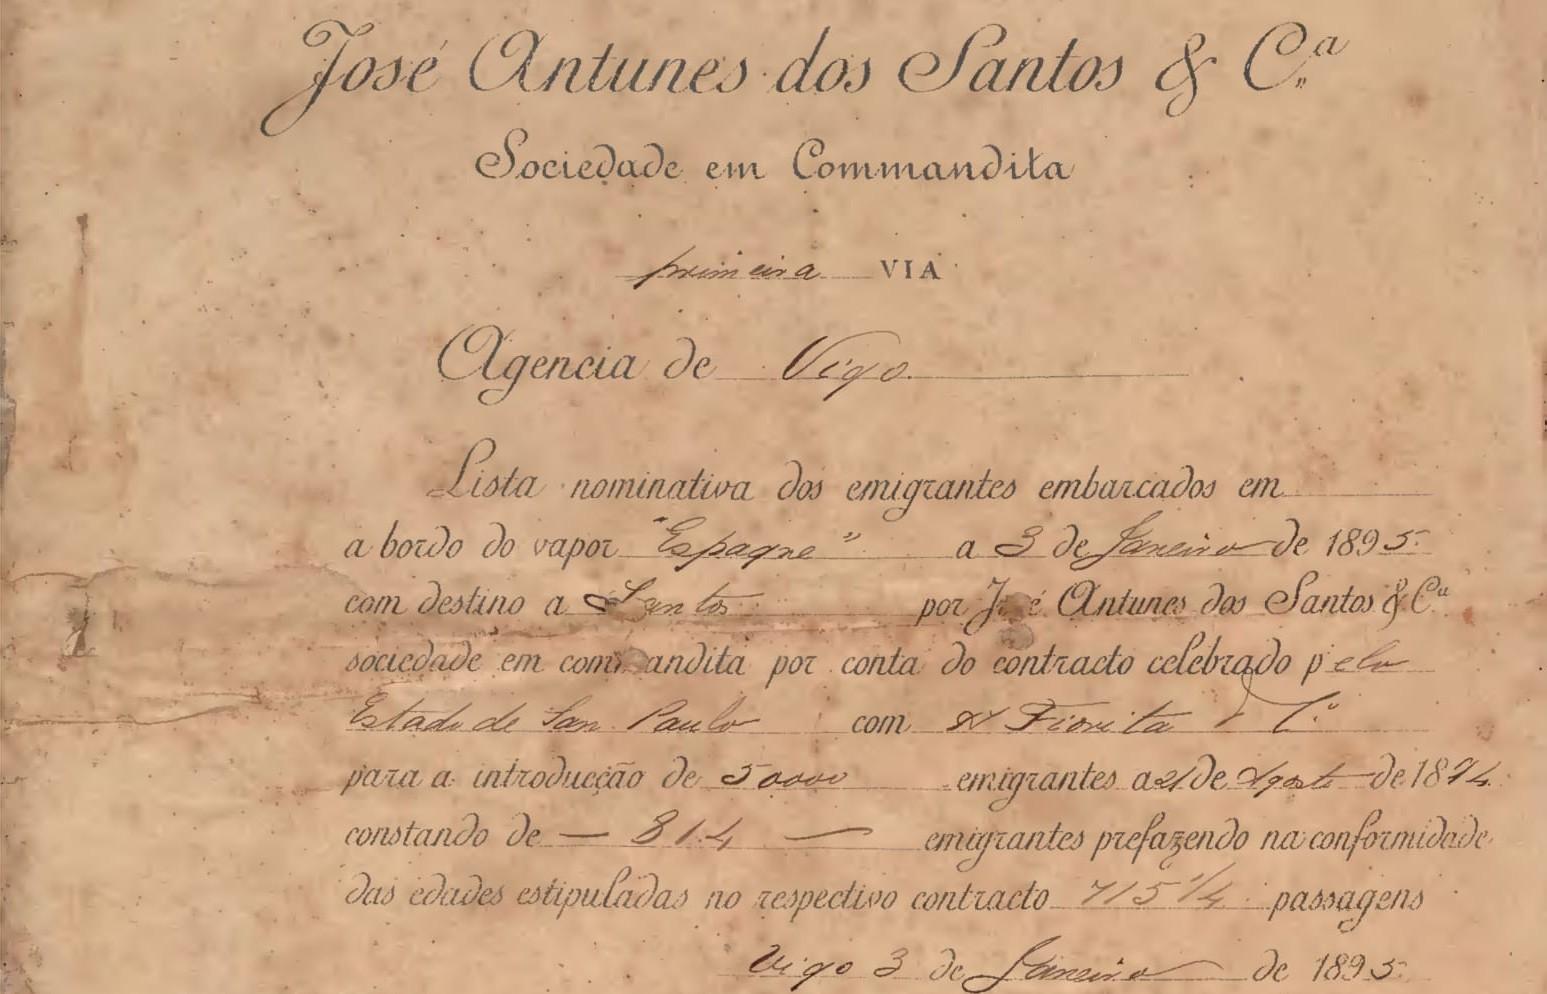 José Antunes dos Santos & C.ª
Sociedade em Commandita
primeira VIA
Agencia de Vigo.
Lista nominativa dos emigrantes embarcados em
a bordo do vapor "Espagne" a 3 de Janeiro de 1895
com destino a Santos por José Antunes dos Santos & C.ª
sociedade em commandita por conta do contracto celebrado pelo
Estado de San Paulo com A Fiorita & C.ª
para a introducção de 50000 emigrantes a 21 de Agosto de 1894
constando de — 814 — emigrantes prefazendo na conformidade
das edades estipuladas no respectivo contracto 715 1/4 passagens
Vigo 3 de Janeiro de 1895